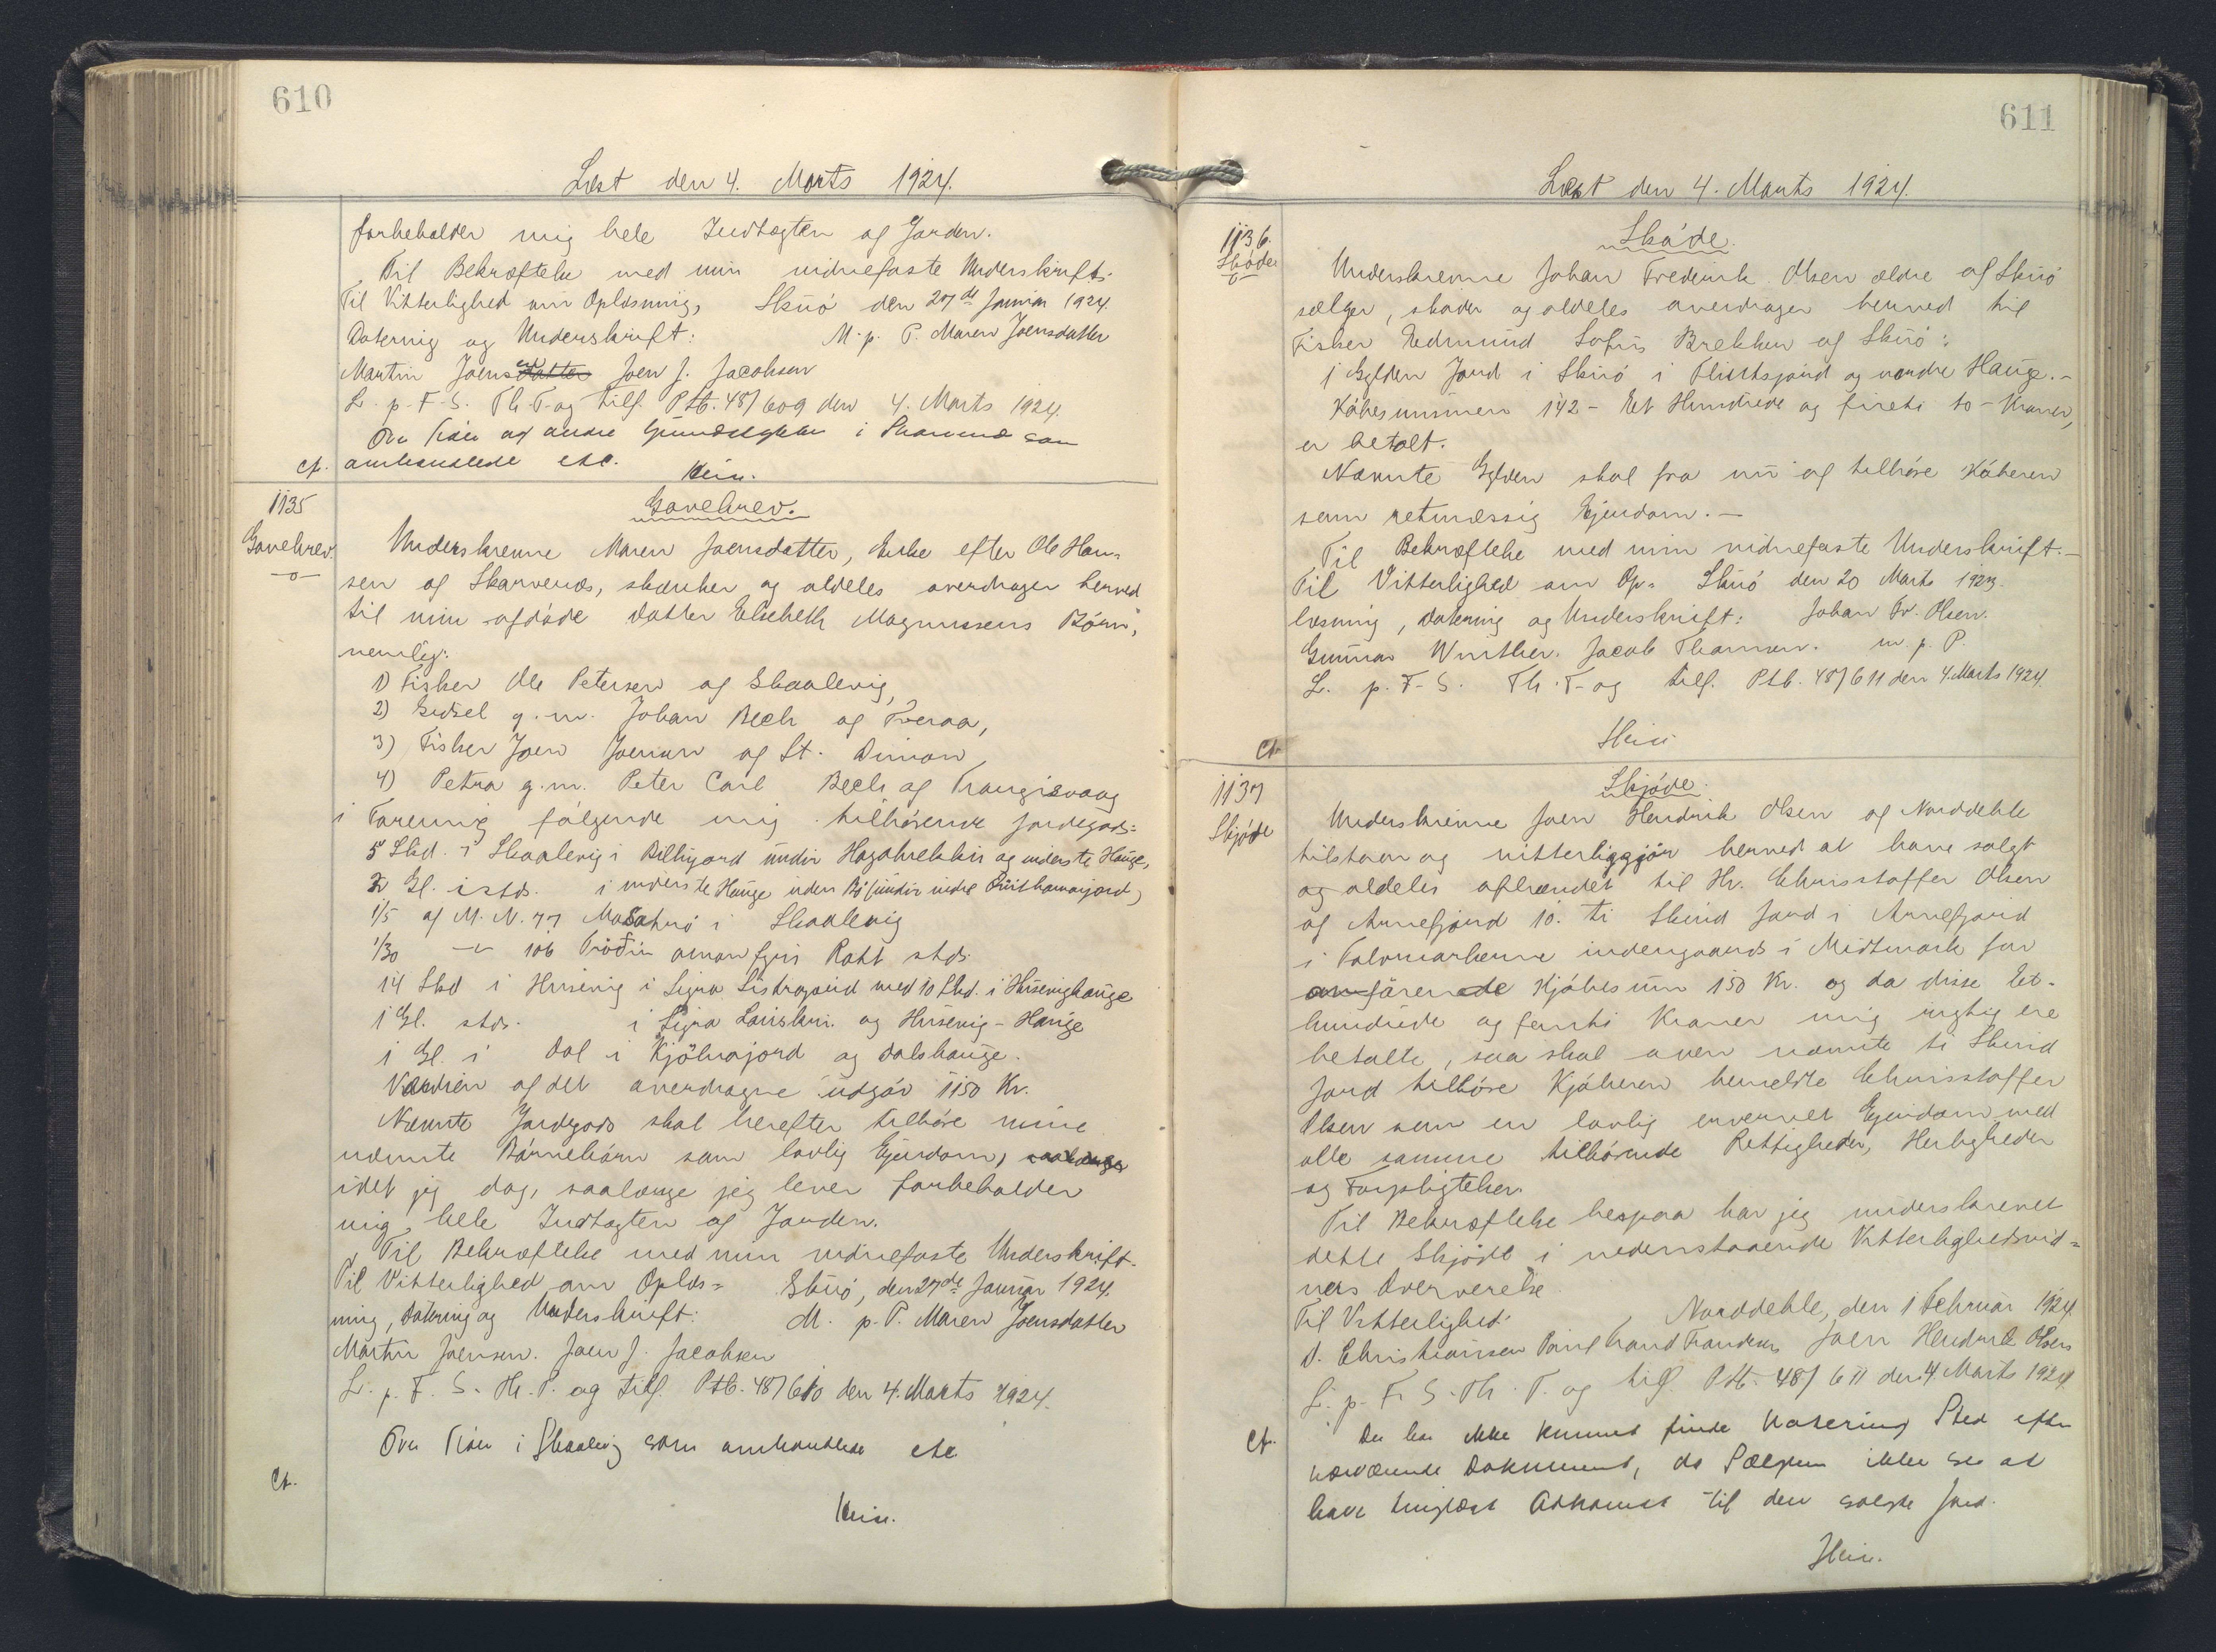 610
Læst den 4. Marts 1924.
forbeholder mig hele Indtægten af Jorden.
Til Bekræftelse med min vidnefaste Underskrift.
Til Vitterlighed om Oplæsning, Skuö den 27de Januar 1924.
Datering og Underskrift: M. p. P. Maren Joensdatter
Martin Joensen Joen J. Jacobsen
L. p. F. S. Th. T. og tilf. Ptb. 48/609 den 4. Marts 1924.
Ova Tider og andre i som
ct. omhandlede etc. Hein.
1135
Gavebrev.
Gavebrev.
Underskrevne Maren Joensdatter, Enke efter Ole Han-
sen af Skarvenæs, skænker og aldeles overdrager herved
til min afdöde Datter Elsebeth Magnussens Börn,
nemlig:
1) Fisker Ole Petersen af Skaalevig,
2) Sidsel g. m. Johan Bech af Tveraa,
3) Fisker Joen Joensen af St. Dimon
4) Petra g. m. Peter Carl Bech af Trangisvaag
i Forening fölgende mig tilhörende Jordegods:
5 Skd. i Skaalevig i Billingjord undir Hagabrekkir og inderste Hauge,
2 Gl. i stds. i inderste Hauge uden
1/5 af M. N. 77 i Skaalevig
1/30 -"- 106 Tröðin oman fyri Rætt stds.
14 Skd i Husevig i Signa Listragard med 10 Skd. i Husevighauge
1 Gl. stds. i Signa og Husevig-Hauge
1 Gl. i Dal i Kjölnajord og Dalshauge.
Værdien af det overdragne udgör 1150 Kr.
Nævnte Jordegods skal herefter tilhöre mine
nævnte Börnebörn som lovlig Ejendom,
idet jeg dog, saalænge jeg lever forbeholder
mig hele Indtægten af Jorden.
Til Bekræftelse med min vidnefaste Underskrift.
Til Vitterlighed om Oplæs= Skuö, den 27de Januar 1924.
ning, Datering og Underskrift: M. p. P. Maren Joensdatter
Martin Joensen. Joen J. Jacobsen
L. p. F. S. Th. T. og tilf. Ptb. 48/610 den 4. Marts 1924.
Ova Tider i Skaalevig som omhandlede etc
ct.
Hein.
611
Læst den 4. Marts 1924.
1136.
Sköde
Sköde.
Underskrevne Johan Frederik Olsen ældre af Skuö
sælger, sköder og aldeles overdrager herved til
Fisker Edmund Sofus Brekken af Skuö:
1 Gylden Jord i Skuö i Flintsjord og nordre Hauge.-
Köbesummen 142- Et Hundrede og fireti to - Kroner,
er betalt.
Nævnte Gylden skal fra nu af tilhöre Köberen
som retmæssig Ejendom.-
Til Bekræftelse med min vidnefaste Underskrift.-
Til Vitterlighed om Op= Skuö den 20 Marts 1923.
læsning, Datering og Underskrift: Johan Fr. Olsen.
Gunnar Winther. Jacob Thomsen. m. p. P.
L. p. F. S. Th. T. og tilf. Ptb. 48/611 den 4. Marts 1924.
Hein
ct.
1137
Skjöde
Skjöde.
Underskrevne Joen Hendrik Olsen af Norddeble
tilstaar og vitterliggjör herved at have solgt
og aldeles afhændet til Hr. Christoffer Olsen
af Arnefjord 10. ti Skind Jord i Arnefjord
i indengaards i Midtmark for
Kjöbesum 150 Kr. og da disse Et-
hundrede og femti Kroner mig rigtig ere
betalte, saa skal oven nævnte ti Skind
Jord tilhöre Kjöberen bemeldte Christoffer
Olsen som en lovlig erhvervet Ejendom med
alle samme tilhörende Rettigheder, Herligheder
og Forpligtelser.
Til Bekræftelse herpaa har jeg underskrevet
dette Skjöde i nedenstaaende Vitterlighedsvid=
ners Overværelse.
Til Vitterlighed: Norddeble, den 1 Februar 1924.
D. Christiansen Poul Joen Hendrik Olsen
L. p. F. S. Th. T. og tilf. Ptb. 48/611 den 4. Marts 1924.
ct. Der har ikke kunnet finde Notering Sted efter
nærværende Dokument, da Sælgeren ikke ses at
have tinglæst Adkomst til den solgte Jord.
Hein.